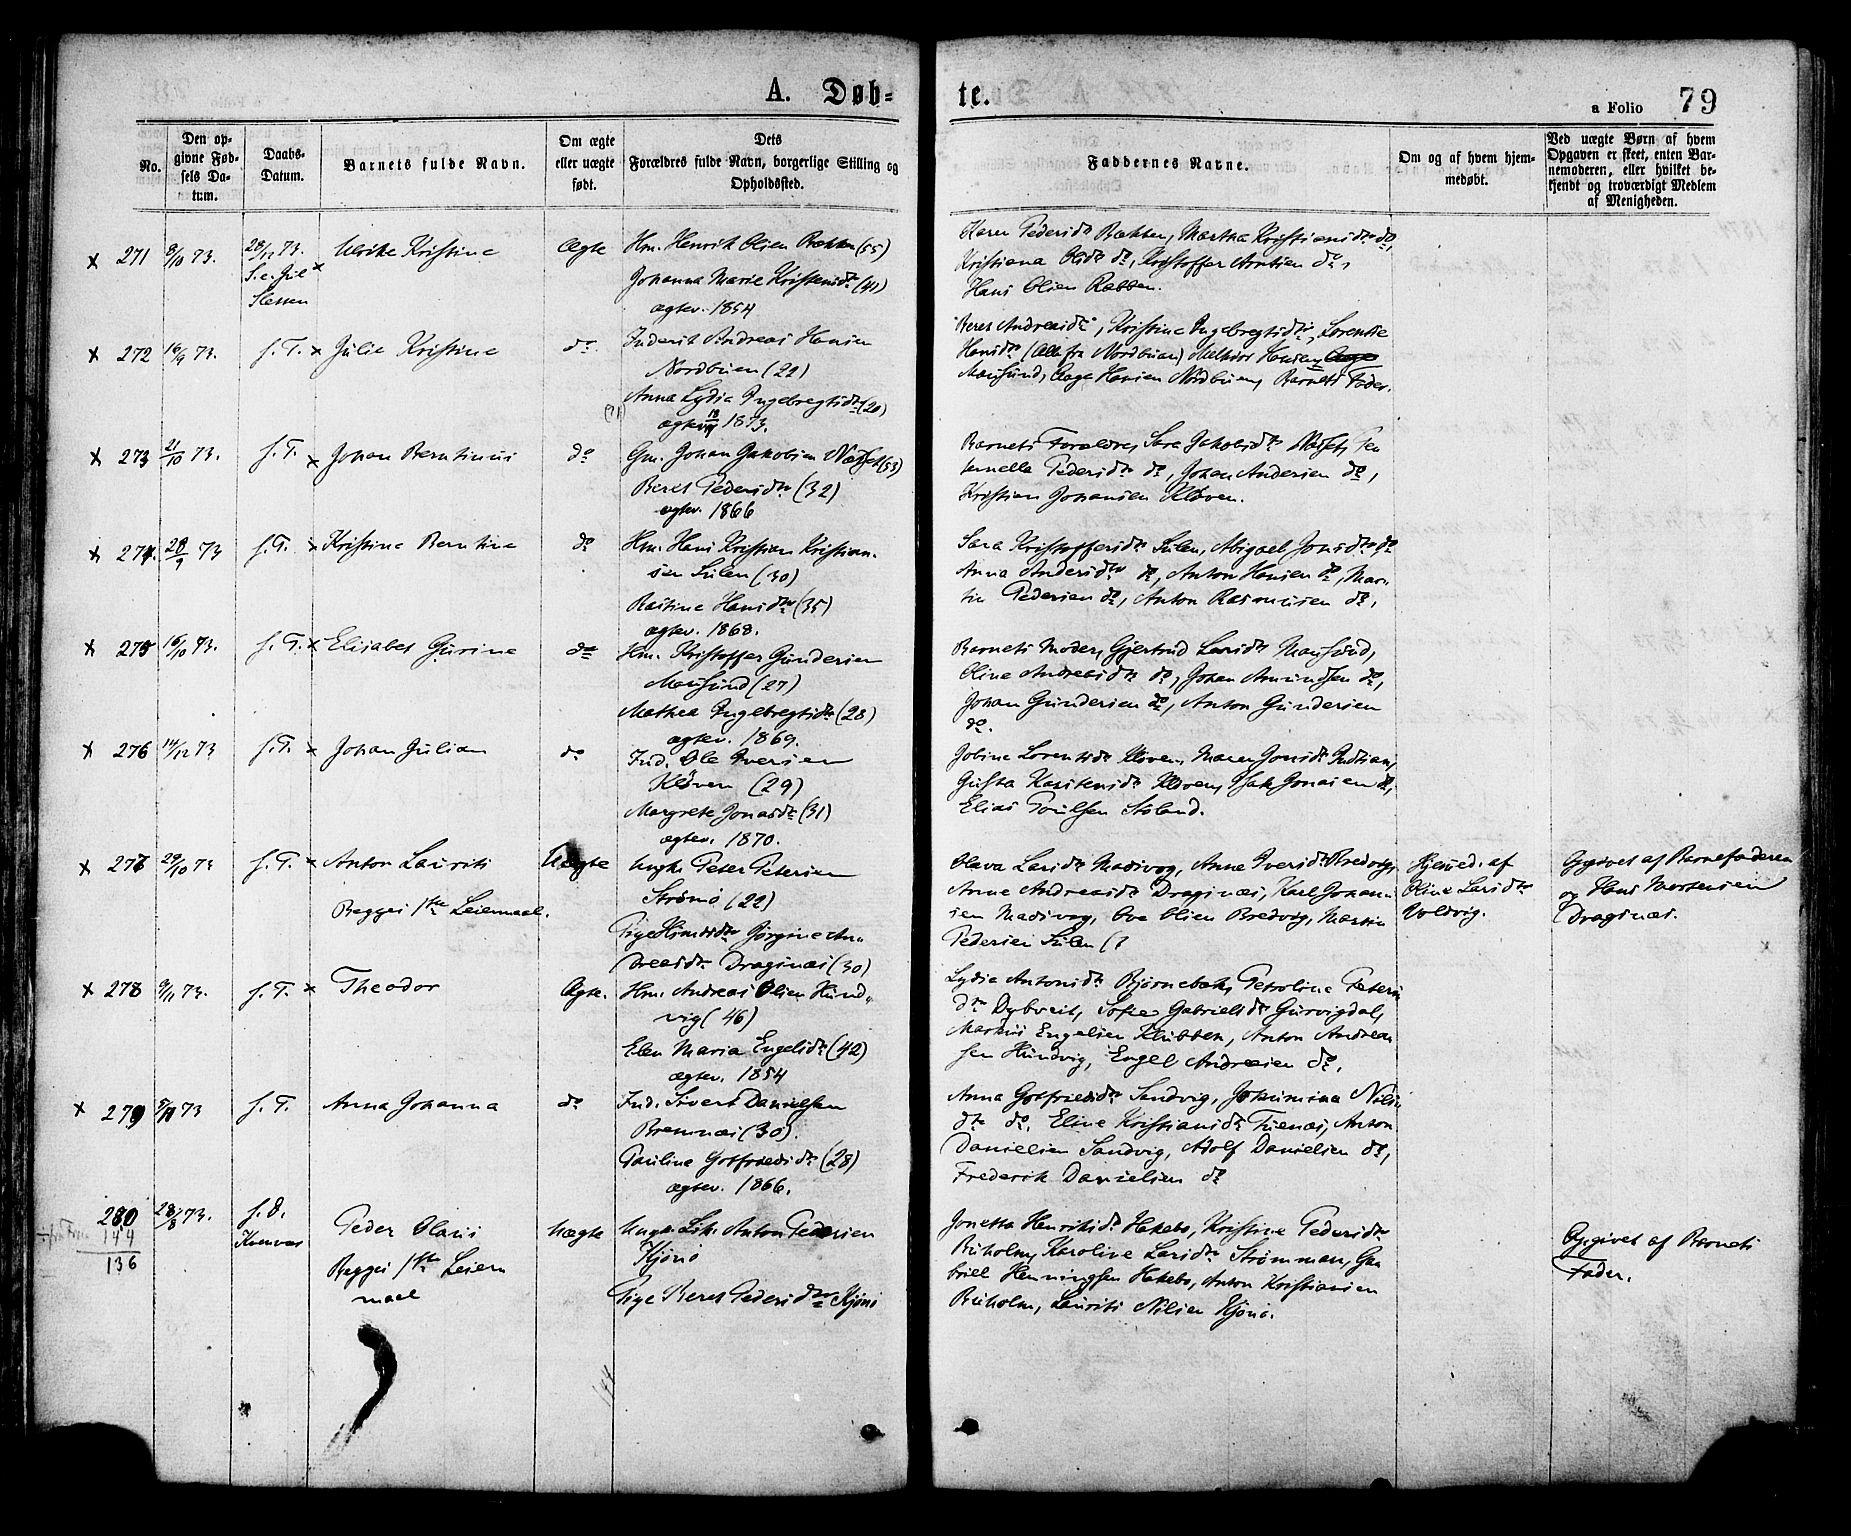 A. Døb-
te.
a Folio 79
No.
Den op-
givne Fød-
sels Da-
tum.
Daabs-
Datum.
Barnets fulde Navn.
Om ægte
eller uægte
født.
Dets
Forældres fulde Navn, borgerlige Stilling og
Opholdssted.
Faddernes Navne.
Om og af hvem hjem-
medøbt.
Ved uægte Børn af hvem
Opgaven er skeet, enten Bar-
nemoderen, eller hvilket be-
kjendt og troværdigt Medlem
af Menigheden.
x 271 8/10 73. 28/12 73. Ulrikke Kristine Ægte Hm. Henrik Olsen Bækken (55)
S. e. Jul x
Slessen
Johanna Marie Kristensdtr (41)
ægtev. 1854
Karen Pedersdtr Bækken, Martha Kristiansdtr do,
Kristiana Olsdtr do, Kristoffer Arntsen do,
Hans Olsen Rabben.
x 272 16/9 73. s. T. x Julie Kristine do. Inderst Andreas Hansen
Nordbuen (22)
Anna Lydia Ingebregtsdtr (20)
ægtev. 1873.
Beret Andreasdtr, Kristine Ingebregtsdtr, Lorentse
Hansdtr (Alle fra Nordbuen) Melkior Hansen
Mausund, Aage Hansen Nordbuen, Barnets Fader.
x 273 21/10 73. s. T. x Johan Berntinus do Gm. Johan Jakobsen Næsset (33)
Beret Pedersdtr (32)
ægtev. 1866
Barnets Forældre, Sara Jakobsdtr Næsset, Pe
ternella Pedersdtr do, Johan Andersen do,
Kristian Johansen Kløven.
x 274. 28/9 73 s. T. x Kristine Berntine do Hm. Hans Kristian Kristian-
sen Sulen (30)
Hansdtr (35)
ægtev. 1868.
Sara Kristoffersdtr Sulen, Abigael Jonsdtr do
Anna Andersdtr do, Anton Hansen do, Mar-
tin Pedersen do, Anton Rasmusen do.
x 275 16/10 73. s. T. x Elisabet Gurine do Hm. Kristoffer Gundersen
Mausund (27)
Mathea Ingebregtsdtr (28)
ægtev. 1869.
Barnets Moder, Gjertrud Larsdtr Mausund,
Oline Andreasdtr do, Johan Amundsen do,
Johan Gundersen do, Anton Gundersen
do.
x 276 14/12 73 s. T. x Johan Julian do Ind. Ole Iversen
Kløven (29)
Margrete Jonasdtr (31)
ægtev. 1870.
Jobine Lorentsdtr Kløven, Maren Jonsdtr
Gusta Karstensdtr Kløven, Isak Jonasen do,
Elias Poulsen
x 277 29/10 73 s. T. x Anton Laurits Uægte Ungk. Peter Petersen
Strømø (22)
Begges 1ste Leiermaal.
Pige Jørgine An-
dreasdtr Dragsnæs (30)
Olava Larsdtr Madsvog, Anne Iversdtr Bredvig,
Anne Andreasdtr Dragsnæs, Karl Johan-
sen Madsvog, Ove Olsen Bredvig, Martin
Pedersen Sulen (?
Hjemmed. af
Oline Larsdtr
Valsvig.
Opgivet af Barnefaderen
og Hans Mortensen
Dragsnæs.
x 278 9/11 73. s. T. x Theodor Ægte. Hm. Andreas Olsen Hund-
vig (46)
Elen Maria Engelsdtr (42)
ægtev. 1854
Lydia Antonsdtr Bjørnebek, Petroline Peters
dtr Dybveit, Sofie Gabrielsdtr Gurvigdal,
Markus Engelsen Klubben, Anton Andrea-
sen Hundvig, Engel Andreasen do.
x 279 5/11 73 s. T. Anna Johanna do Ind. Sivert Danielsen
Bremnæs (30).
Paulina Gotfriedsdtr (28)
ægtev. 1866.
Anna Gotfriedsdtr Sandvig, Johannina Nils
dtr do. Eline Kristiansdtr Tuenæs, Anton
Danielsen Sandvig, Adolf Danielsen do,
Frederik Danielsen do
280 28/8 73. s. D. Peder Olaus Uægte Anton Pedersen
144
136
Kvenvær
Begges 1ste Leier
maal
Hjønø
Pige Beret Pedersdtr Hjønø
Jonetta Henriksdtr Hakebo, Kristine Pedersdtr
Buholm, Karoline Larsdtr Strømmen, Ga-
briel Henningsen Hakebo, Anton Kristiansen
Buholm, Laurits Nilsen Hjønø.
Opgivet af Barnets
Fader.
144